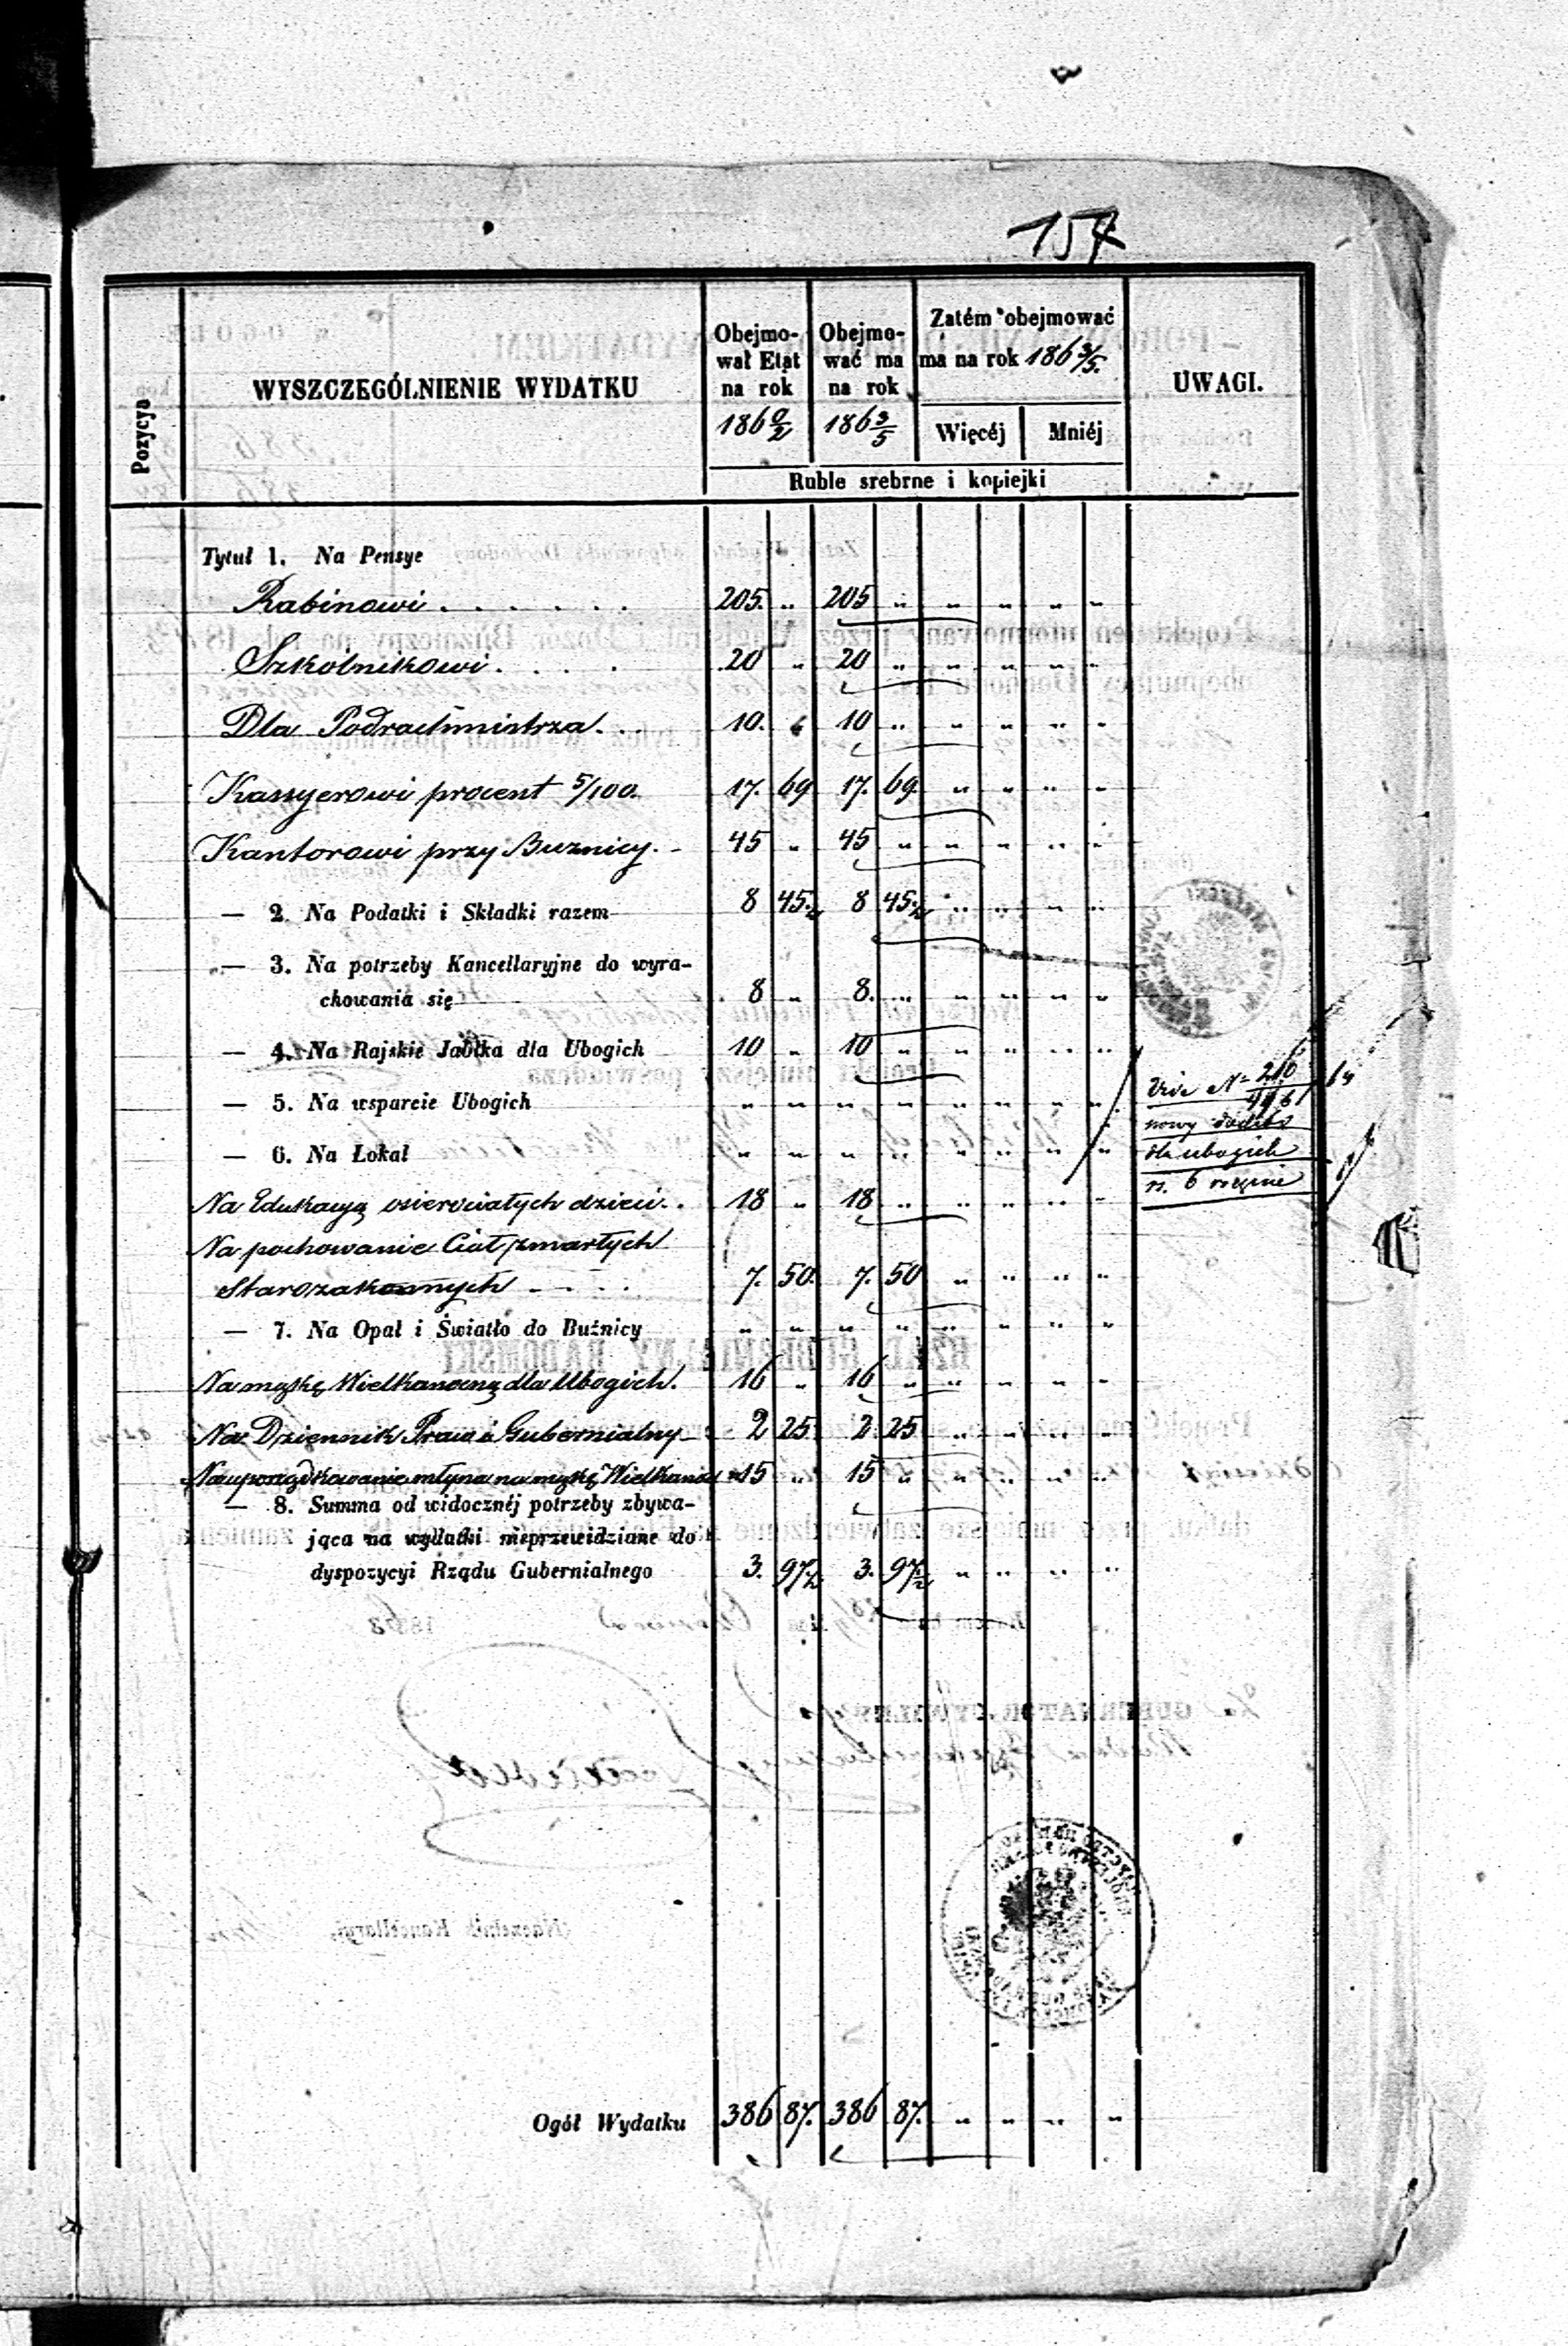 157
Pozycya
WYSZCZEGÓLNIENIE WYDATKU
Obejmo-
wał Etat
na rok
186 0/2
Obejmo-
wać ma
na rok
186 3/5
Zatém obejmować
ma na rok 186 3/5.
Więcéj Mniéj
UWAGI.
Ruble srebrne i kopiejki
Tytuł 1. Na Pensye
Rabinowi . . . . . . 205. " 205 " " " " "
Szkolnikowi . . . . 20 " 20 " " " " "
Dla Podrachmistrza . . . 10. " 10 " " " " "
Kassyerowi procent 5/100. 17. 69 17. 69 " " " "
Kantorowi przy Buznicy. - 45 " 45 " " " " "
— 2. Na Podatki i Składki razem 8 45 1/2 8 45 1/2 " " " "
— 3. Na potrzeby Kancellaryjne do wyra-
chowania się 8 " 8. " " " " "
— 4. Na Rajskie Jabłka dla Ubogich 10 " 10 " " " " "
— 5. Na wsparcie Ubogich " " " " " " " "
— 6. Na Lokal " " " " " " " "
nowy
dla ubogich
rs. 6
Na Edukacyą osierociałych dzieci . . 18 " 18 " " " " "
Na pochowanie Ciał zmarłych
Starozakonnych - - - - 7. 50. 7. 50 " " " "
— 7. Na Opał i Światło do Buźnicy " " " " " " " "
Na mąkę Wielkanocną dla Ubogich. 16 " 16 " " " " "
Na Dziennik Praw i Gubernialny 2 25 2 25 " " " "
Na uporządkowanie młyna na mąkę 15 " 15 " " " " "
— 8. Summa od widocznéj potrzeby zbywa-
jąca na wydatki nieprzewidziane do
dyspozycyi Rządu Gubernialnego 3. 97 1/2 3. 97 1/2 " " " "
Ogół Wydatku 386 87. 386 87. " " " "